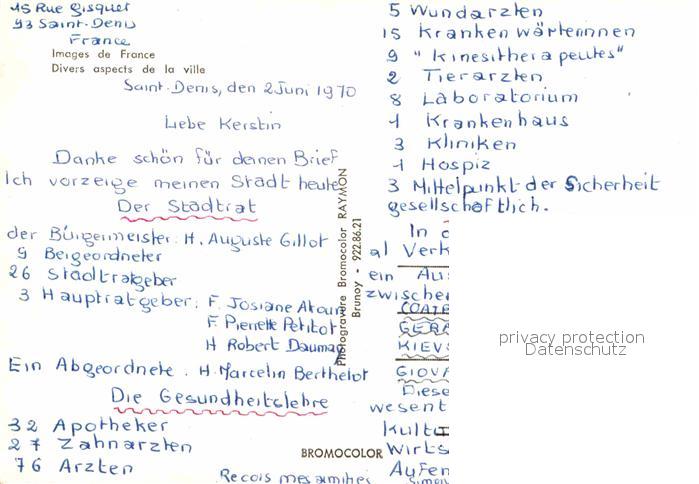 15 Rue Gisquet
93 Saint-Denis
France
Images de France
Divers aspects de la ville
Saint-Denis, den 2 Juni 1970
Liebe Kerstin
Danke schön für deinen Brief
Ich vorzeige meinen Stadt heute
Der Stadtrat
der Bürgermeister: H. Auguste Gillot
9 Beigeordneter
26 Stadtratgeber
3 Hauptratgeber: F. Josiane
F. Pierrette Petitot
H Robert Daumas
Ein Abgeordnete. H. Marcelin Berthelot
Die Gesundheitslehre
32 Apotheker
27 Zahnarzten
76 Arzten
Photogravure Bromocolor RAYMON
Brunoy - 922.86.21
BROMOCOLOR
Reçois mes
5 Wundarzten
15 Krankenwärterinnen
9 "Kinesitherapeutes"
2 Tierarzten
8 Laboratorium
1 Krankenhaus
3 Kliniken
1 Hospiz
3 Mittelpunkt der Sicherheit
gesellschoftlich.
In
al Verk
ein Au
zwischen
COATB
GERA
KIEV
GIOVA
Diese
wesent
Kultu
Wirts
Aufen
privacy protection
Datenschutz